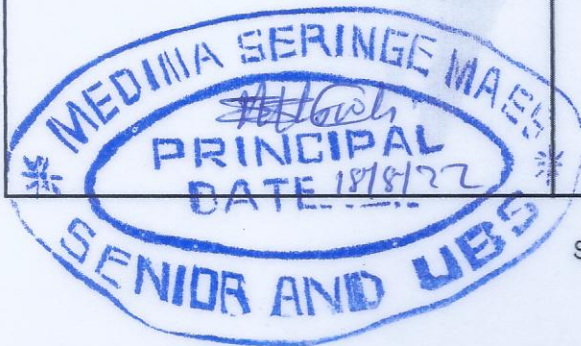 * MEDINA SERINGE MASS *
PRINCIPAL
DATE 18/8/22
SENIOR AND UBS
S